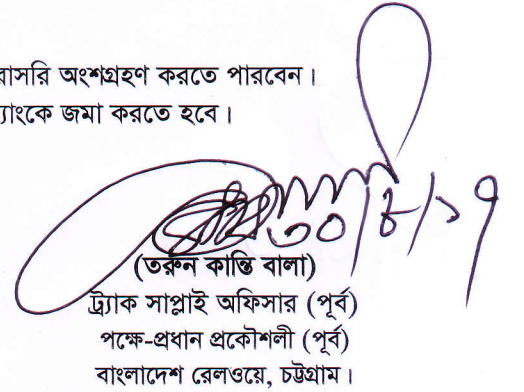 রাসরি অংশগ্রহণ করতে পারবেন।
্যাংকে জমা করতে হবে।
৩০/৪/১৭
(তরুন কান্তি বালা)
ট্র্যাক সাপ্লাই অফিসার (পূর্ব)
পক্ষে-প্রধান প্রকৌশলী (পূর্ব)
বাংলাদেশ রেলওয়ে, চট্টগ্রাম।